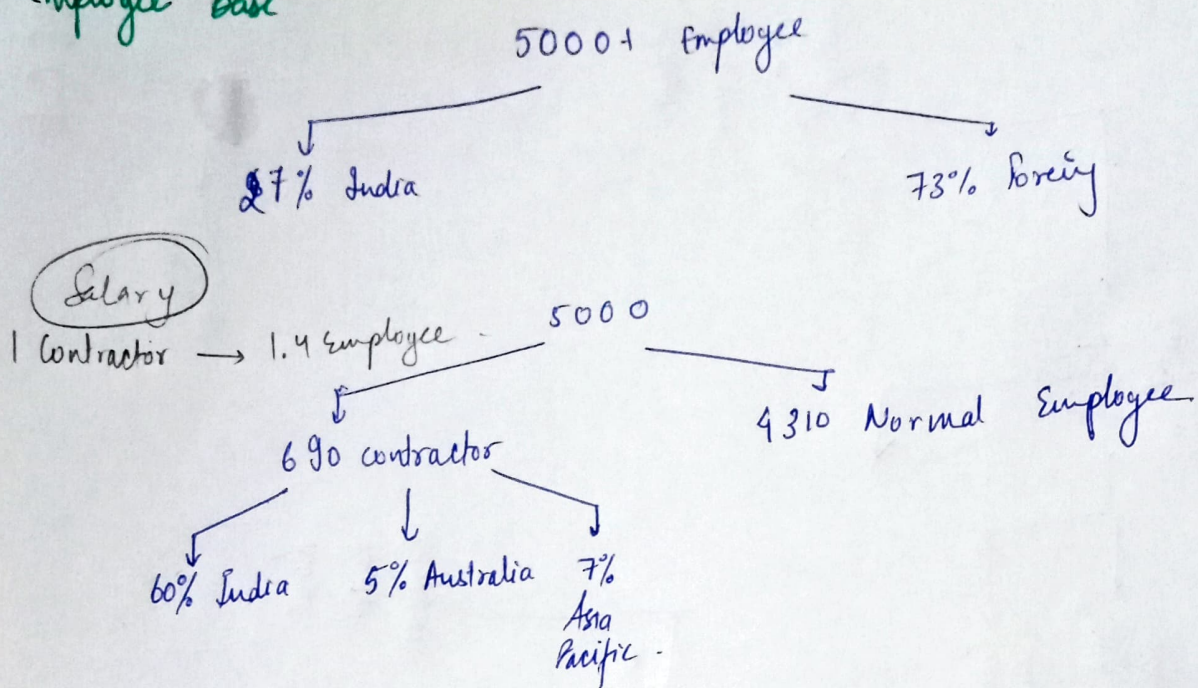 Employee Base
5000+ Employee
27% India
73% Foreig
Salary
1 Contractor → 1.4 Employee
5000
690 contractor
4310 Normal Employee
60% India
5% Australia
7%
Asia
Pacific.